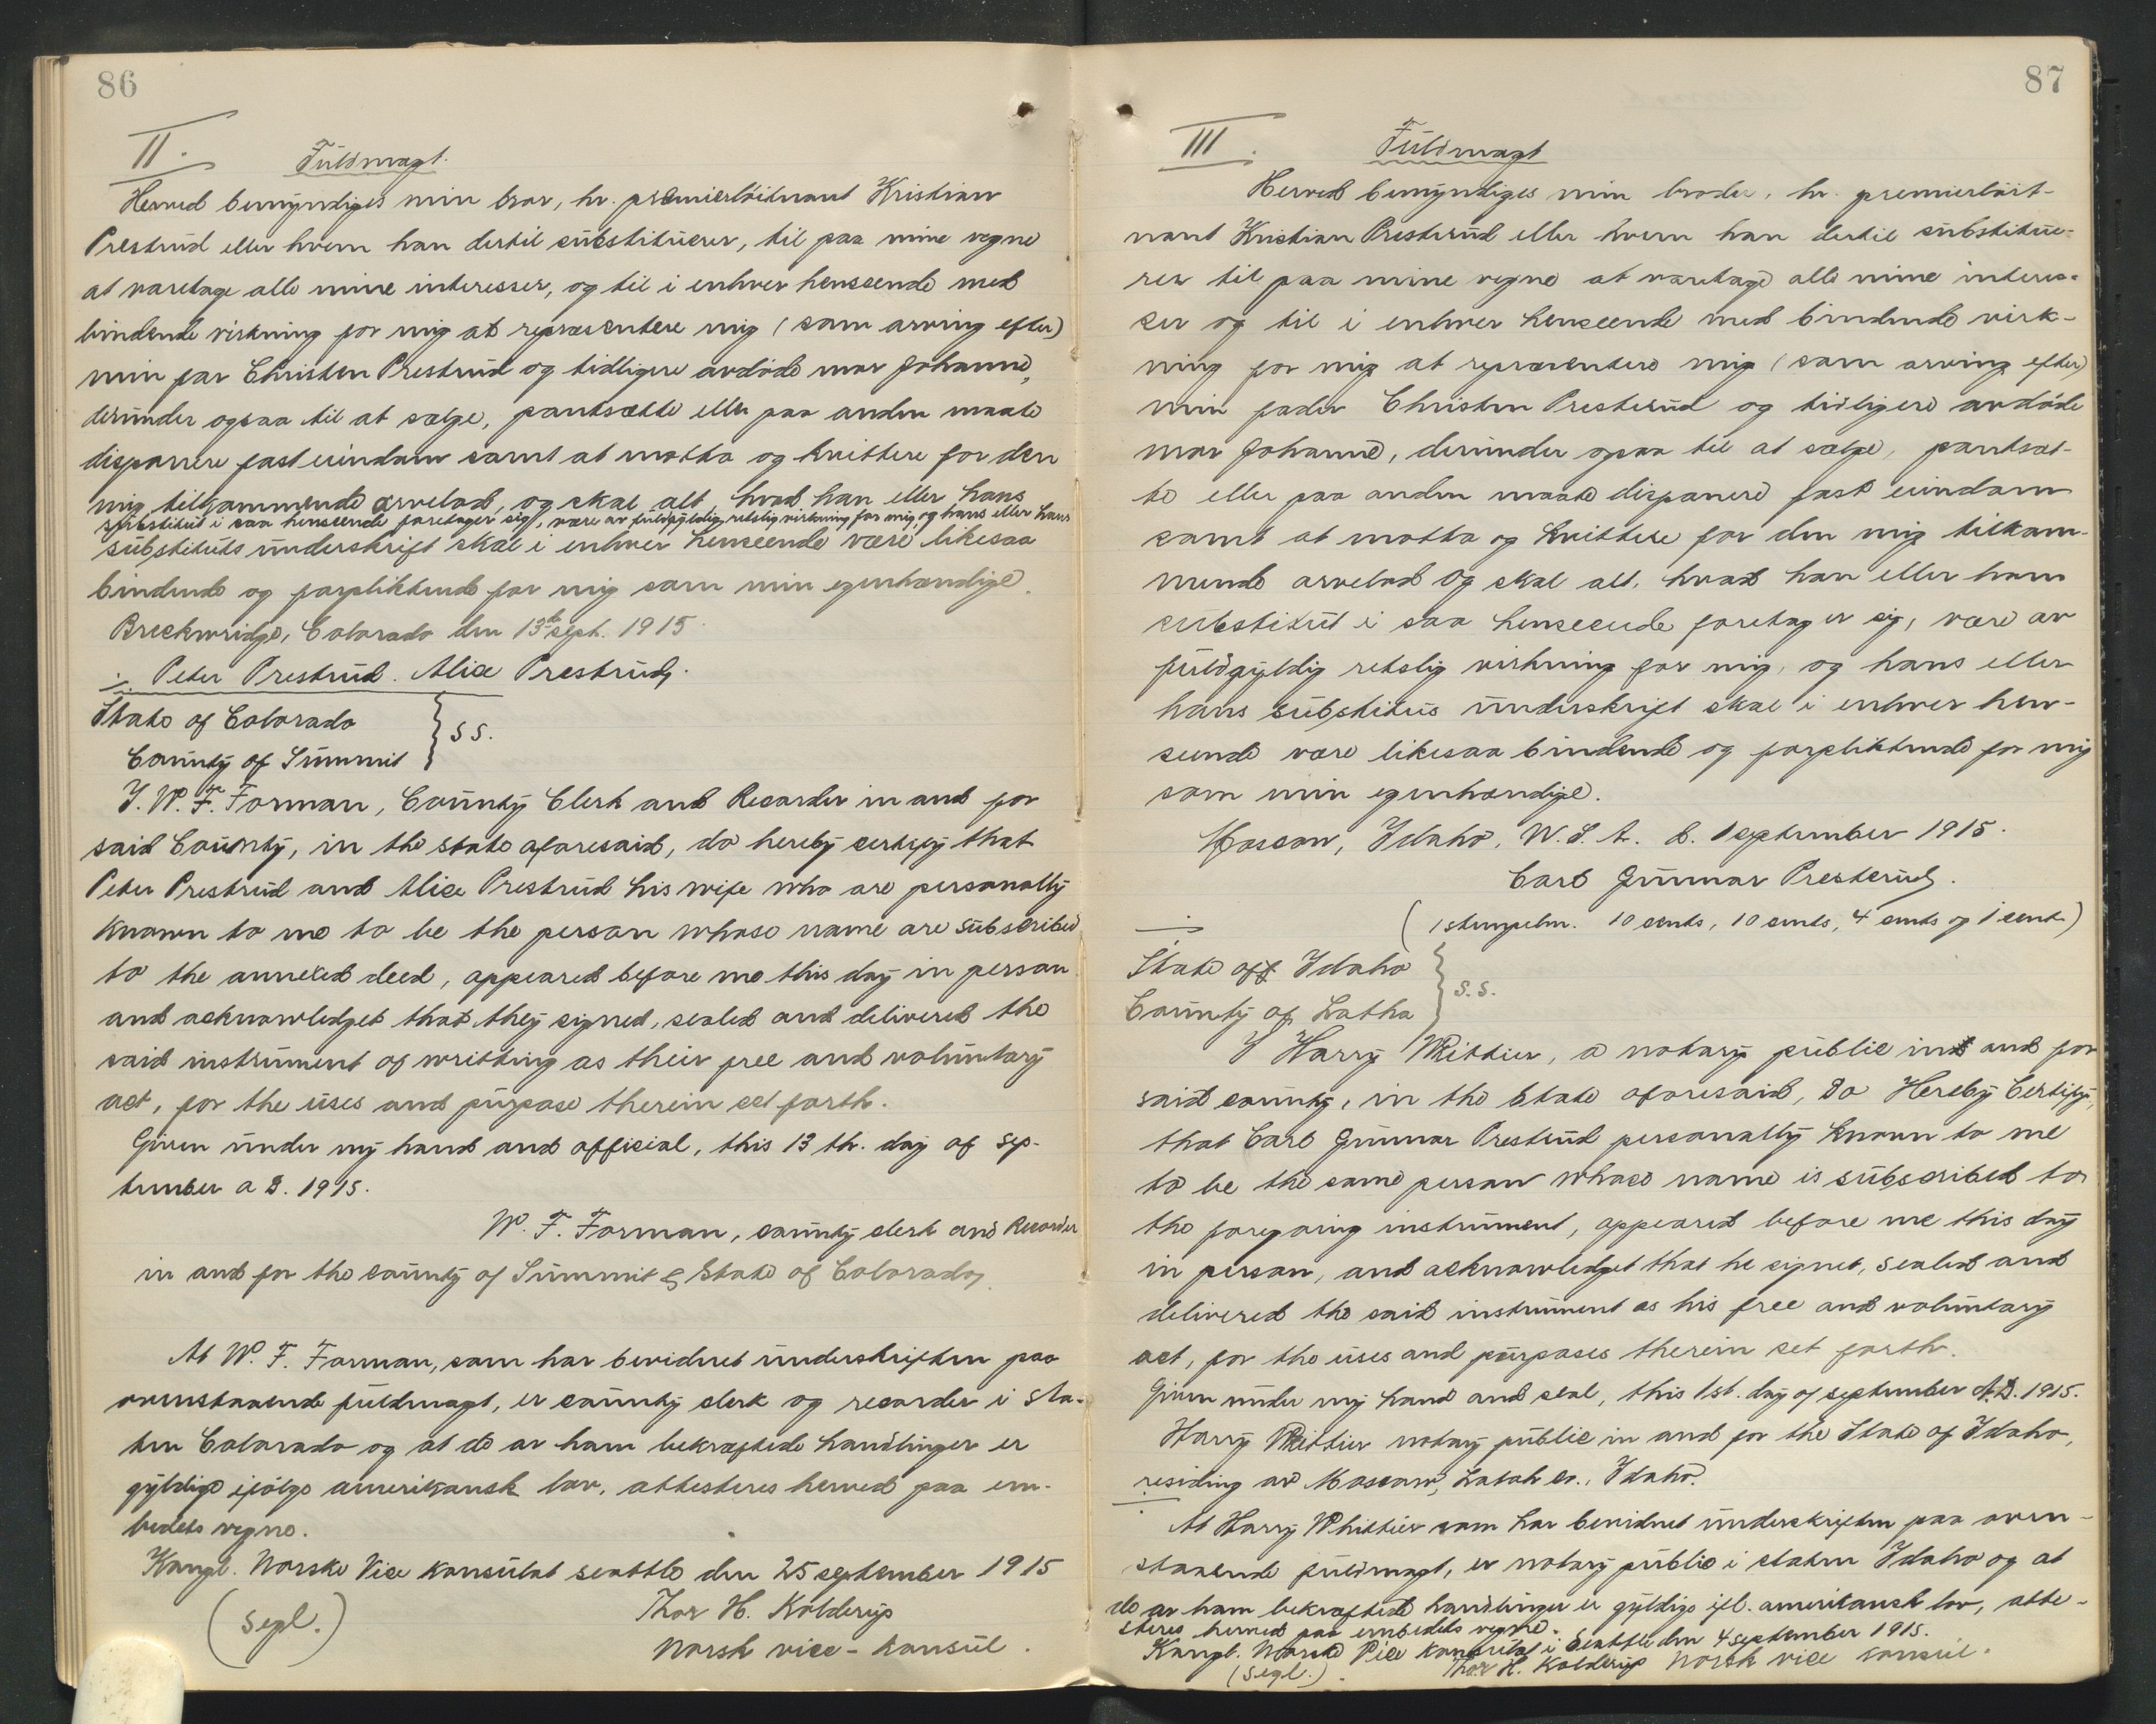 86
II.
Fuldmagt.
Herved bemyndiges min bror, hr. premierløitnant Kristian
Prestrud eller hvem han dertil substituerer, til paa mine vegne
at varetage alle mine interesser, og til i enhver henseende med
bindende virkning for mig at repræsentere mig (som arving efter)
min far Christen Prestrud og tidligere avdøde mor Johanne,
derunder ogsaa til at sælge, pantsætte eller paa anden maate
disponere fast eiendom samt at motta og kvittere for den
mig tilkommende arvelod, og skal alt hvad han eller hans
substitut i saa henseende foretager sig, være av fuldgyldig retslig virkning for mig, og hans eller hans
substituts underskrift skal i enhver henseende være likesaa
bindende og forpliktende for mig som min egenhændige.
Breckenridge, Colorado den 13de sept. 1915.
Peter Prestrud. Alice Prestrud.
State of Colorado
County of Summit } ss.
I. W. F. Forman, County Clerk and Recorder in and for
said County, in the state aforesaid, do hereby certify that
Peter Prestrud and Alice Prestrud his wife who are personally
known to me to be the person whose name are subscribed
to the annexed deed, appeared before me this day in person
and acknowledget that they signed, sealed and delivered the
said instrument of writting as their free and voluntary
act, for the uses and purpose therein set forth.
Given under my hand and official, this 13 th. day of sep-
tember a D. 1915.
W. F. Forman, county clerk and Recorder
in and for the county of Summit & State of Colorado.
At W. F. Forman, som har bevidnet underskriften paa
ovenstaaende fuldmagt, er county clerk og recorder i sta-
ten Colorado og at de av ham bekræftede handlinger er
gyldige ifølge amerikansk lov, attesteres herved paa em-
bedets vegne.
Kongl. Norske Vice konsulat seattle den 25 september 1915
(Segl.)
Thor H. Kolderup
Norsk vice-konsul.
87
III.
Fuldmagt
Herved bemyndiges min broder, hr. premierløit-
nant Kristian Presterud eller hvem han dertil substitue-
rer til paa mine vegne at varetage alle mine interes-
ser og til i enhver henseende med bindende virk-
ning for mig at repræsentere mig (som arving efter)
min fader Christen Presterud og tidligere avdøde
mor Johanne, derunder ogsaa til at sælge, pantsæt-
te eller paa anden maate disponere fast eiendom
samt at motta og kvittere for den mig tilkom-
mende arvelod og skal alt, hvad han eller hans
substitut i saa henseende foretager sig, være av
fuldgyldig retslig virkning for mig, og hans eller
hans substitus underskrift skal i enhver hen-
seende være likesaa bindende og forpliktende for mig
som min egenhændige.
Moscow, Idaho, U.S.A. d. 1 september 1915.
Carl Gunnar Presterud.
(1 stempelm. 10 cents, 10 cents, 4 cents og 1 cent)
State off Idaho
County of Latha } s.s.
I Harry Whittier, a notary public in and for
said county, in the State aforesaid, Do Hereby Certify,
that Carl Gunnar Prestrud personally known to me
to be the same person whose name is subscribed to
the foregoing instrument, appeared before me this day
in person, and acknowledget that he signet, sealed and
delivered the said instrument as his free and voluntary
act, for the uses and purposes therein set forth.
Given under my hand and seal, this 1st. day of september A.D. 1915.
Harry Whittier notary public in and for the State of Idaho,
residing av Moscow, Latah co., Idaho.
At Harry Whittier som har bevidnet underskriften paa oven-
staaende fuldmagt, er notary public i staten Idaho og at
de av ham bekræftede handlinger er gyldige ifl. amerikansk lov, atte-
steres herved paa embedets vegne.
Kongl. Norske Vice konsulat i Seattle den 4 september 1915.
(Segl.). Thor H. Kolderup Norsk vice consul.